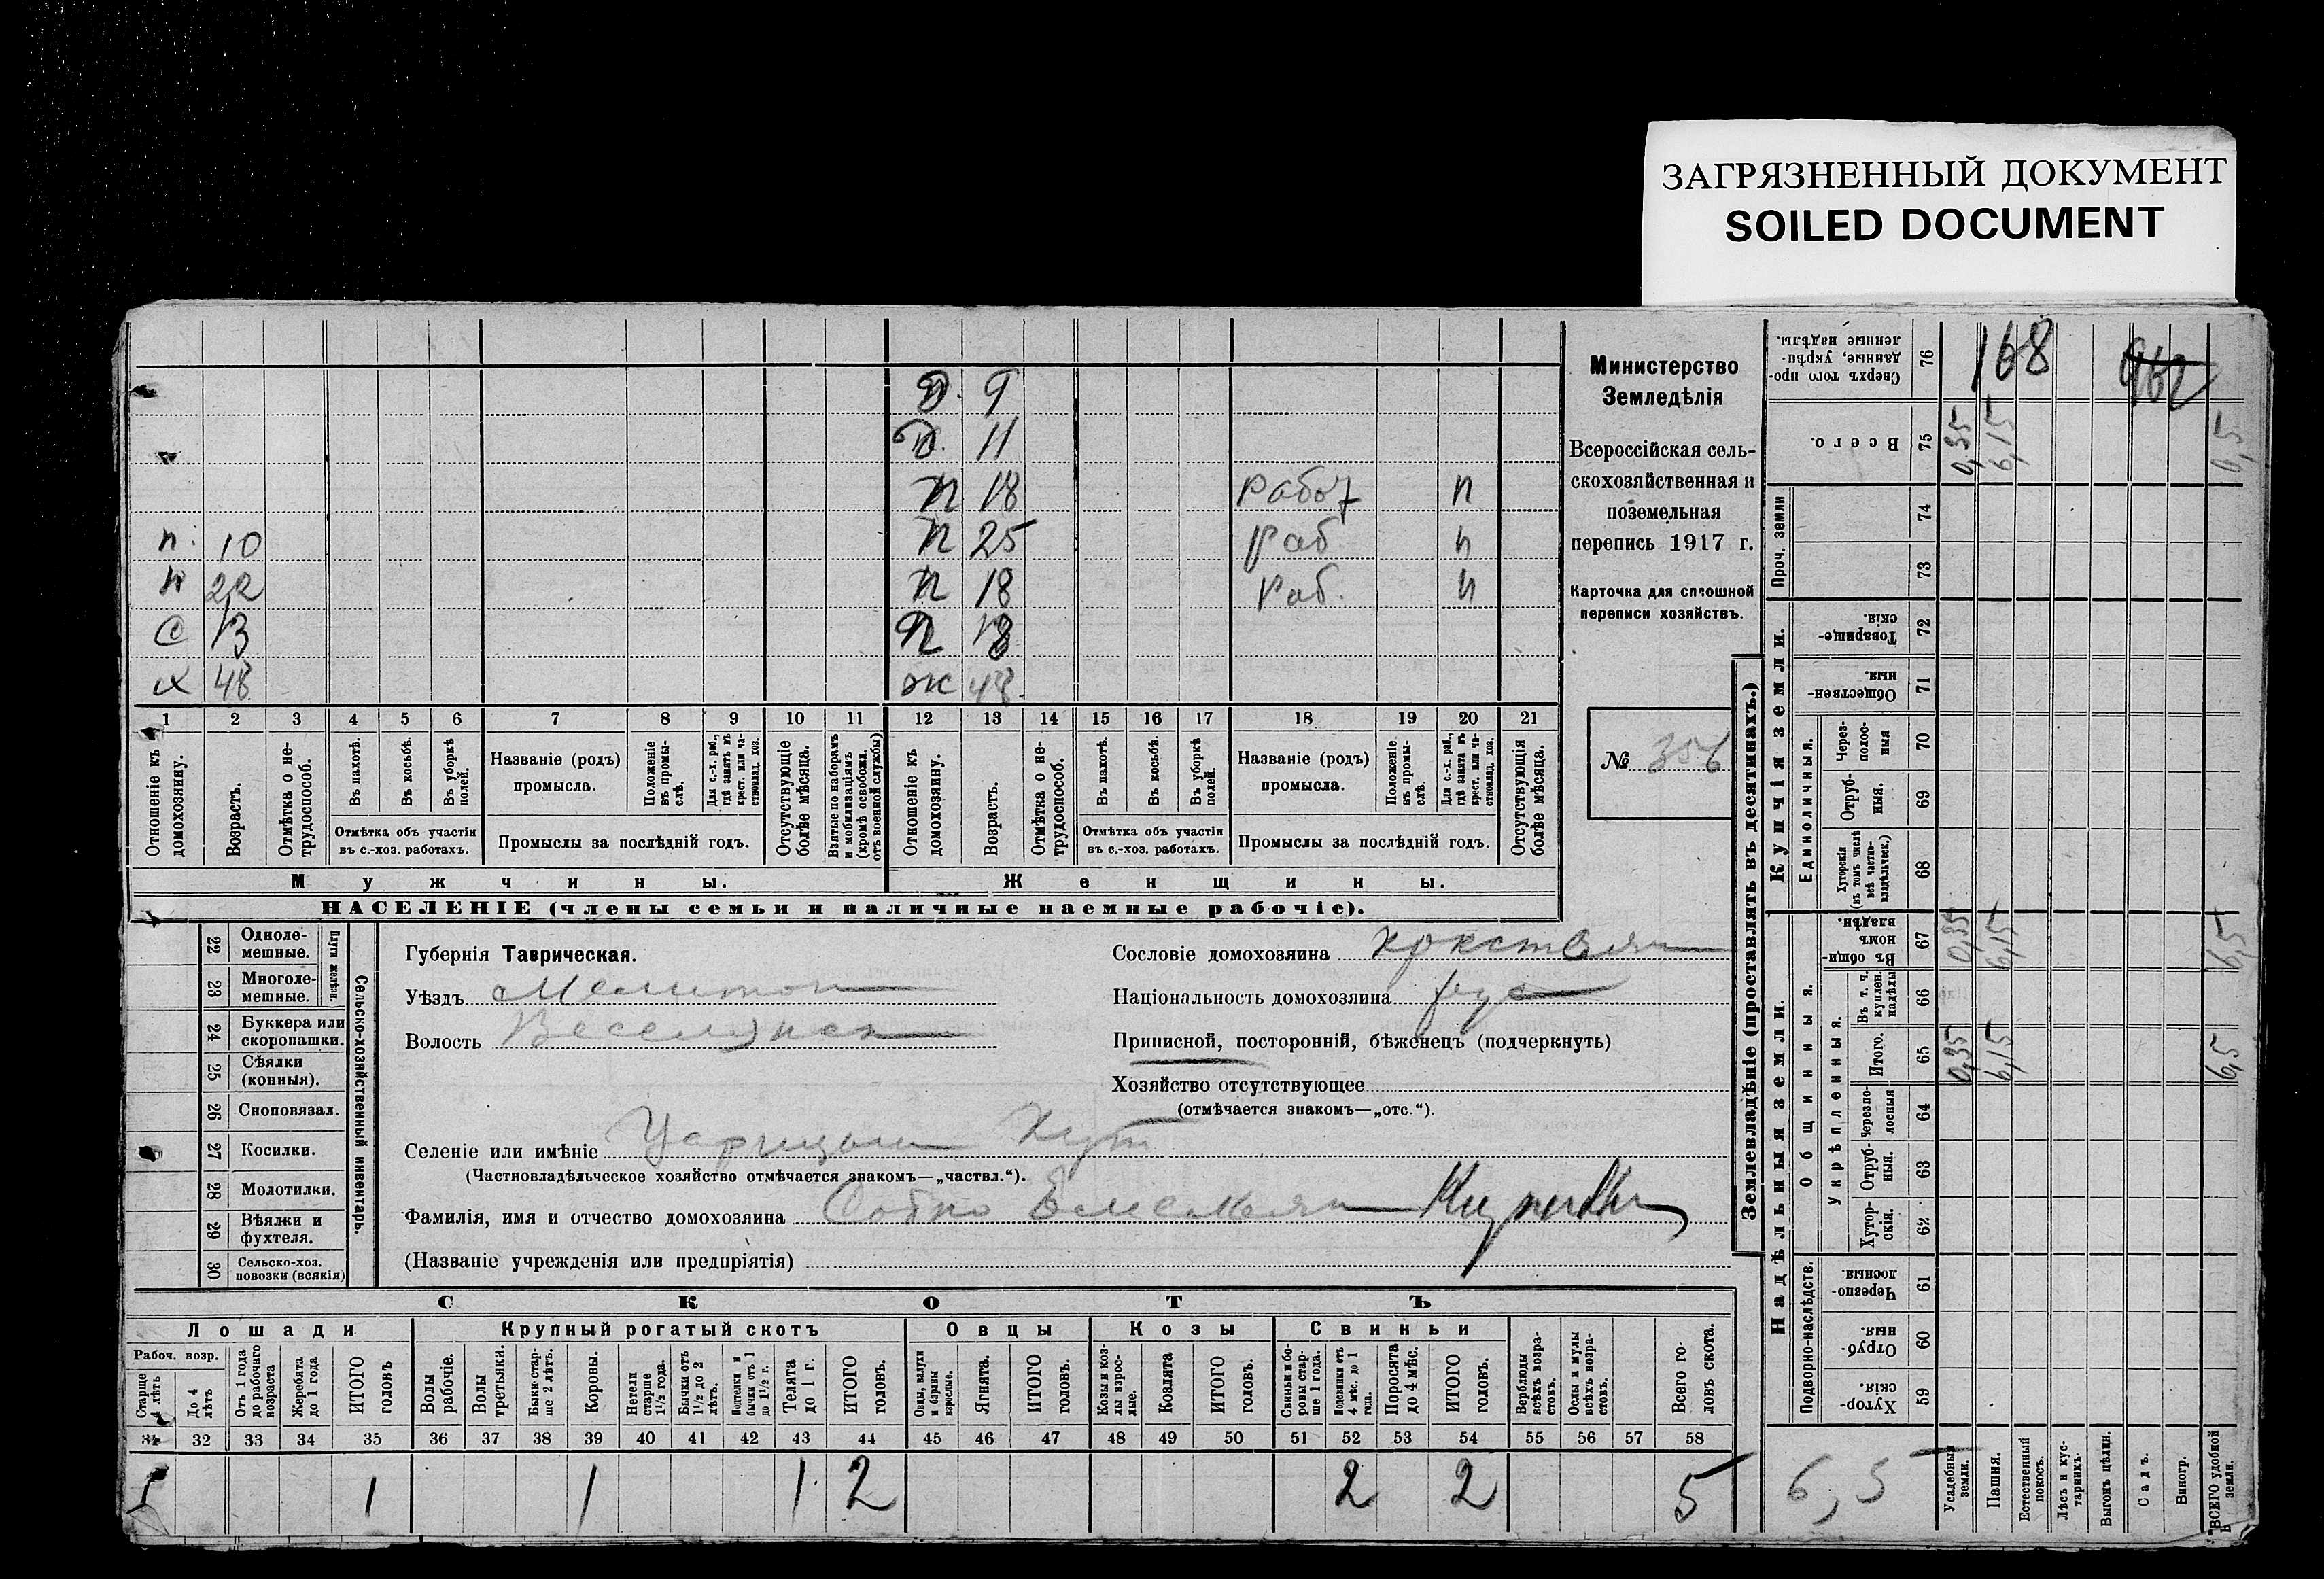 ЗАГРЯЗНЕННЫЙ ДОКУМЕНТ
SOILED DOCUMENT
Д. 9
Д. 11
П 18 Работ п
п. 10 П 25 Раб п
п 22 П 18 Раб. п
С 13 П
х 48 ж 48
1 2 3 4 5 6 7 8 9 10 11 12 13 14 15 16 17 18 19 20 21
Отношеніе къ домохозяину.
Возрастъ.
Отмѣтка о не-трудоспособ.
Въ пахотѣ.
Въ косьбѣ.
Въ уборкѣ полей.
Отмѣтка объ участіи въ с.-хоз. работахъ.
Названіе (родъ) промысла.
Положеніе въ промы-слѣ.
Для с.-х. раб., гдѣ занятъ въ крест. или ча-стновлад. хоз.
Промыслы за послѣдній годъ.
Отсутствующіе болѣе мѣсяца.
Взятые по наборамъ и мобилизаціямъ (кромѣ освобожд. отъ военной службы)
Отношеніе къ домохозяину.
Возрастъ.
Отмѣтка о не-трудоспособ.
Въ пахотѣ.
Въ косьбѣ.
Въ уборкѣ полей.
Отмѣтка объ участіи въ с.-хоз. работахъ.
Названіе (родъ) промысла.
Положеніе въ промы-слѣ.
Для с.-х. раб., гдѣ занята въ крест. или ча-стновлад. хоз.
Промыслы за послѣдній годъ.
Отсутствующія болѣе мѣсяца.
Мужчины.
Женщины.
НАСЕЛЕНІЕ (члены семьи и наличные наемные рабочіе).
Министерство
Земледѣлія
Всероссійская сель-
скохозяйственная и
поземельная
перепись 1917 г.
Карточка для сплошной
переписи хозяйствъ.
№ 356
22 Одноле-мешные.
23 Многоле-мешные.
Плуги желѣзн.
24 Буккера или скоропашки.
25 Сѣялки (конныя).
26 Сноповязал.
27 Косилки.
28 Молотилки.
29 Вѣялки и фухтеля.
30 Сельско-хоз. повозки (всякія)
Сельско-хозяйственный инвентарь.
Губернія Таврическая.
Уѣздъ Мелитоп
Волость
Сословіе домохозяина
Національность домохозяина рус
Приписной, посторонній, бѣженецъ (подчеркнуть)
Хозяйство отсутствующее
(отмѣчается знакомъ—„отс.“).
Селеніе или имѣніе Царицын Кут
(Частновладѣльческое хозяйство отмѣчается знакомъ—„частвл.“).
Фамилія, имя и отчество домохозяина Собко Емельян
(Названіе учрежденія или предпріятія)
СКОТЪ
Лошади
Крупный рогатый скотъ
Овцы
Козы
Свиньи
Рабоч. возр.
Старше 4 лѣтъ
До 4 лѣтъ
Отъ 1 года до рабочаго возраста
Жеребята до 1 года
ИТОГО головъ
Волы рабочіе.
Волы третьяки.
Быки стар-ше 2 лѣтъ.
Коровы.
Нетели старше 1½ года.
Бычки отъ 1½ до 2 лѣтъ.
Подтелки и бычки отъ 1 до 1½ г.
Телята до 1 г.
ИТОГО головъ.
Овцы, валухи и бараны взрослые.
Ягнята.
ИТОГО головъ.
Козы и коз-лы взрос-лые.
Козлята
ИТОГО головъ.
Свиньи и бо-ровы стар-ше 1 года.
Подсвинки отъ 4 мѣс. до 1 года.
Поросята до 4 мѣс.
ИТОГО головъ.
Верблюды всѣхъ возра-стовъ.
Ослы и мулы всѣхъ возра-стовъ.
Всего го-ловъ скота.
31 32 33 34 35 36 37 38 39 40 41 42 43 44 45 46 47 48 49 50 51 52 53 54 55 56 57 58
1 1 1 1 2 2 2 5
Землевладѣніе (проставлять въ десятинахъ.)
Надѣльныя земли.
Купчія земли.
Проч. земли
Сверхъ того про-данные, укрѣп-ленные надѣлы. 76 168 962
Всего. 75 0,35 6,15 6,5
74
73
Товарище-скія. 72
Обществен-ныя. 71
Единоличныя.
Через-полос-ныя 70
Отруб-ныя. 69
Хуторскія (въ томъ числѣ всѣ частно-владѣльческ.) 68
Общинныя.
Въ общи-номъ владѣн. 67 0,35 6,15 6,5
Укрѣпленныя.
Въ т. ч. куплен. надѣлы 66
Итого. 65 0,35 6,15 6,5
Черезпо-лосныя 64
Отруб-ныя. 63
Хутор-скія. 62
Подворно-наслѣдств.
Черезпо-лосныя. 61
Отруб-ныя. 60
Хутор-скія. 59
6,5
Усадебныя земли.
Пашня.
Естественный покосъ.
Лѣсъ и кус-тарникъ.
Выгонъ цѣлин.
Садъ.
Виногр.
ВСЕГО удобной земли.